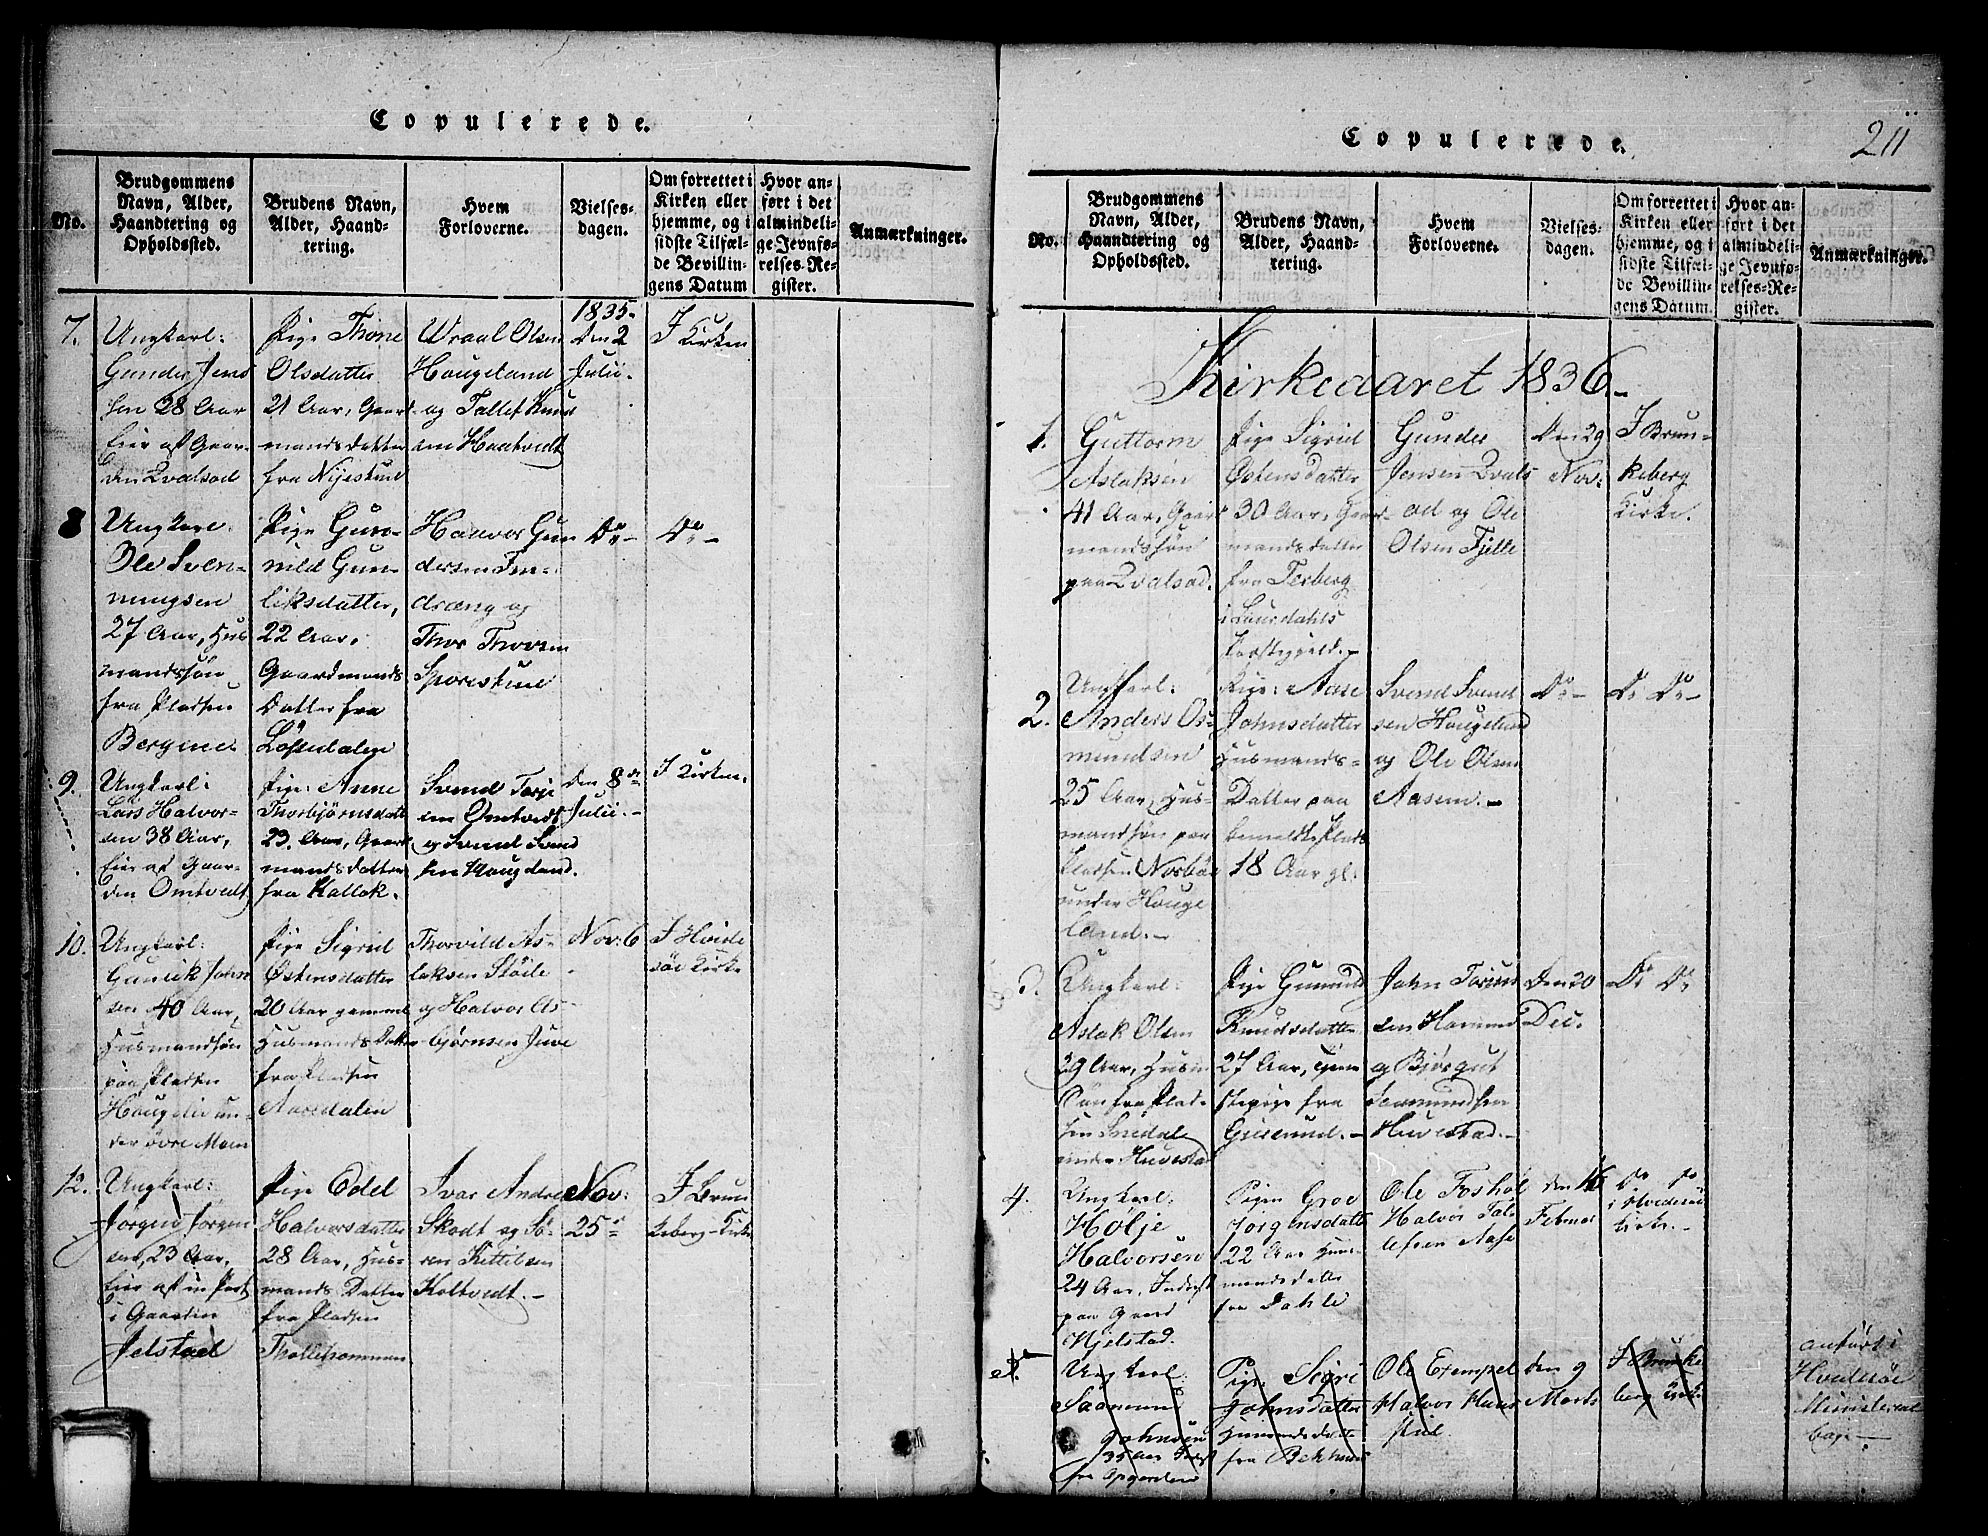 Copulerede.
No.
Brudgommens
Navn, Alder,
Haandtering og
Opholdssted.
Brudens Navn,
Alder, Haand-
tering.
Hvem
Forloverne.
Vielses-
dagen.
Om forrettet i
Kirken eller
hjemme, og i
sidste Tilfæl-
de Bevillin-
gens Datum
Hvor an-
ført i det
almindeli-
ge Jevnfø-
relses-Re-
gister.
Anmærkninger.
7.
Ungkarl:
Gunder Jens
sen 28 Aar
Eier af Gaar-
den Qvalsod
Pige Thone
Olsdatter
21 Aar, Gaard-
mandsdatter
fra Nijestuel
Wraal Olsen
Haugeland
og Tallef Knud
sen Haatvedt
1835
den 2
Julii.
I Kirken
8
Ungkarl:
Ole Sven-
nungsen
27 Aar, Hus
mandssøn
fra Pladsen
Bergine.
Pige Gun-
nild Gun-
liksdatter,
22 Aar,
Gaardmands
Datter fra
Løstedalen
Halvor Gun
dersen
dræng og
Thor Thorsen
Sporestuel
Do -
Do -
9.
Ungkarl:
Lars Halvor-
sen 38 Aar,
Eier af Gaar-
den Omtvedt
Pige: Anne
Thorbjørnsdatt
23 Aar, Gaard
mandsdatter
fra Kallak.
Svend Torje
sen Omtvedt
og Svend Svend
sen Haugeland.
Den 8de
Julii. -
I Kirken.
10.
Ungkarl:
Gunick John
sen 40 Aar,
Husmandsøn
paa Pladsen
Haugelie un-
der øvre Moen
Pige Sigrid
Østensdatter
20 Aar gammel
Husmands Datter
fra Pladsen
Aasedalen
Thorvild As-
laksen Støile
og Halvor As-
bjørnsen Juve
Nov: 6
I Hvide
søe Kirke
12.
Ungkarl:
Jørgen Jørgen
sen, 23 Aar,
Eier af en Part
i Gaarden
Jelstad
Pige Edel
Halvorsdatter
28 Aar, Hus-
mands Datter
fra Pladsen
Thollefsommen
Ivar Andre
Skodt og Sö-
ren Kittilsen
Holtvedt. -
Nov:
25
I Brun
keberg Kirke
Copulerede.
211
No.
Brudgommens
Navn, Alder,
Haandtering og
Opholdssted.
Brudens Navn,
Alder, Haand-
tering.
Hvem
Forloverne.
Vielses-
dagen.
Om forrettet i
Kirken eller
hjemme, og i
sidste Tilfæl-
de Bevillin-
gens Datum.
Hvor an-
ført i det
almindeli-
ge Jevnfø-
relses-Re-
gister.
Anmærkninger.
Kirkeaaret 1836.
1.
Guttorm
Aslaksen
41 Aar, Gaard
mandssøn
paa Qvalsod.
Pige Sigrid
Østensdatter
30 Aar, Gaard-
mandsdatter
fra Terberg
i Laurdahls
Præstegield. -
Gunder
Jensen Qvals
od og Ole
Olsen Fjelle
Den 29
Nov:
I Brun-
keberg
Kirke.
2.
Ungkarl:
Anders Os-
mundsen
25 Aar, Hus-
mandsøn paa
Pladsen Norbøe
under Hauge
land. -
Pige: Aase
Johnsdatter
Husmands-
Datter paa
bemeldte Plads
18 Aar gl.
Svend Svend
sen Haugeland
og Ole Olsen
Aasem. -
Do -
Do Do -
3.
Ungkarl:
Aslak Olsen
29 Aar, Husm
Søn fra Plad-
sen Snedale
under Huvestad
Pige Gunnild
Knudsdatter
27 Aar, tjene
stepige fra
John Torius
sen
og Bjørgut
Sæmundsen
Huvestad. -
Den 20
Dec.
Do Do
4.
Ungkarl:
Hølje
Halvorsen
24 Aar, Inderst
paa Gaard
Hjelstad.
Pigen Groe
Jørgensdatt
22 Aar Huus-
mandsdatter
fra Dahle
Ole Foshol
Halvor Tol-
lefsen Aase
den 16
Februar
Do Do
i Hvidesøe
Kirke. -
Ungkarl:
Saamund
Johnsen
35 Aar Inderst
fra Opgarden
Pige Sigri
Johnsdatter
Husmandsdatter
fra
Ole Exempel
Halvor Haus
stuel.
den 9
Marts
I Brunke
berg Kirke
anført i
Hvidesøe
Ministerial
bog. -